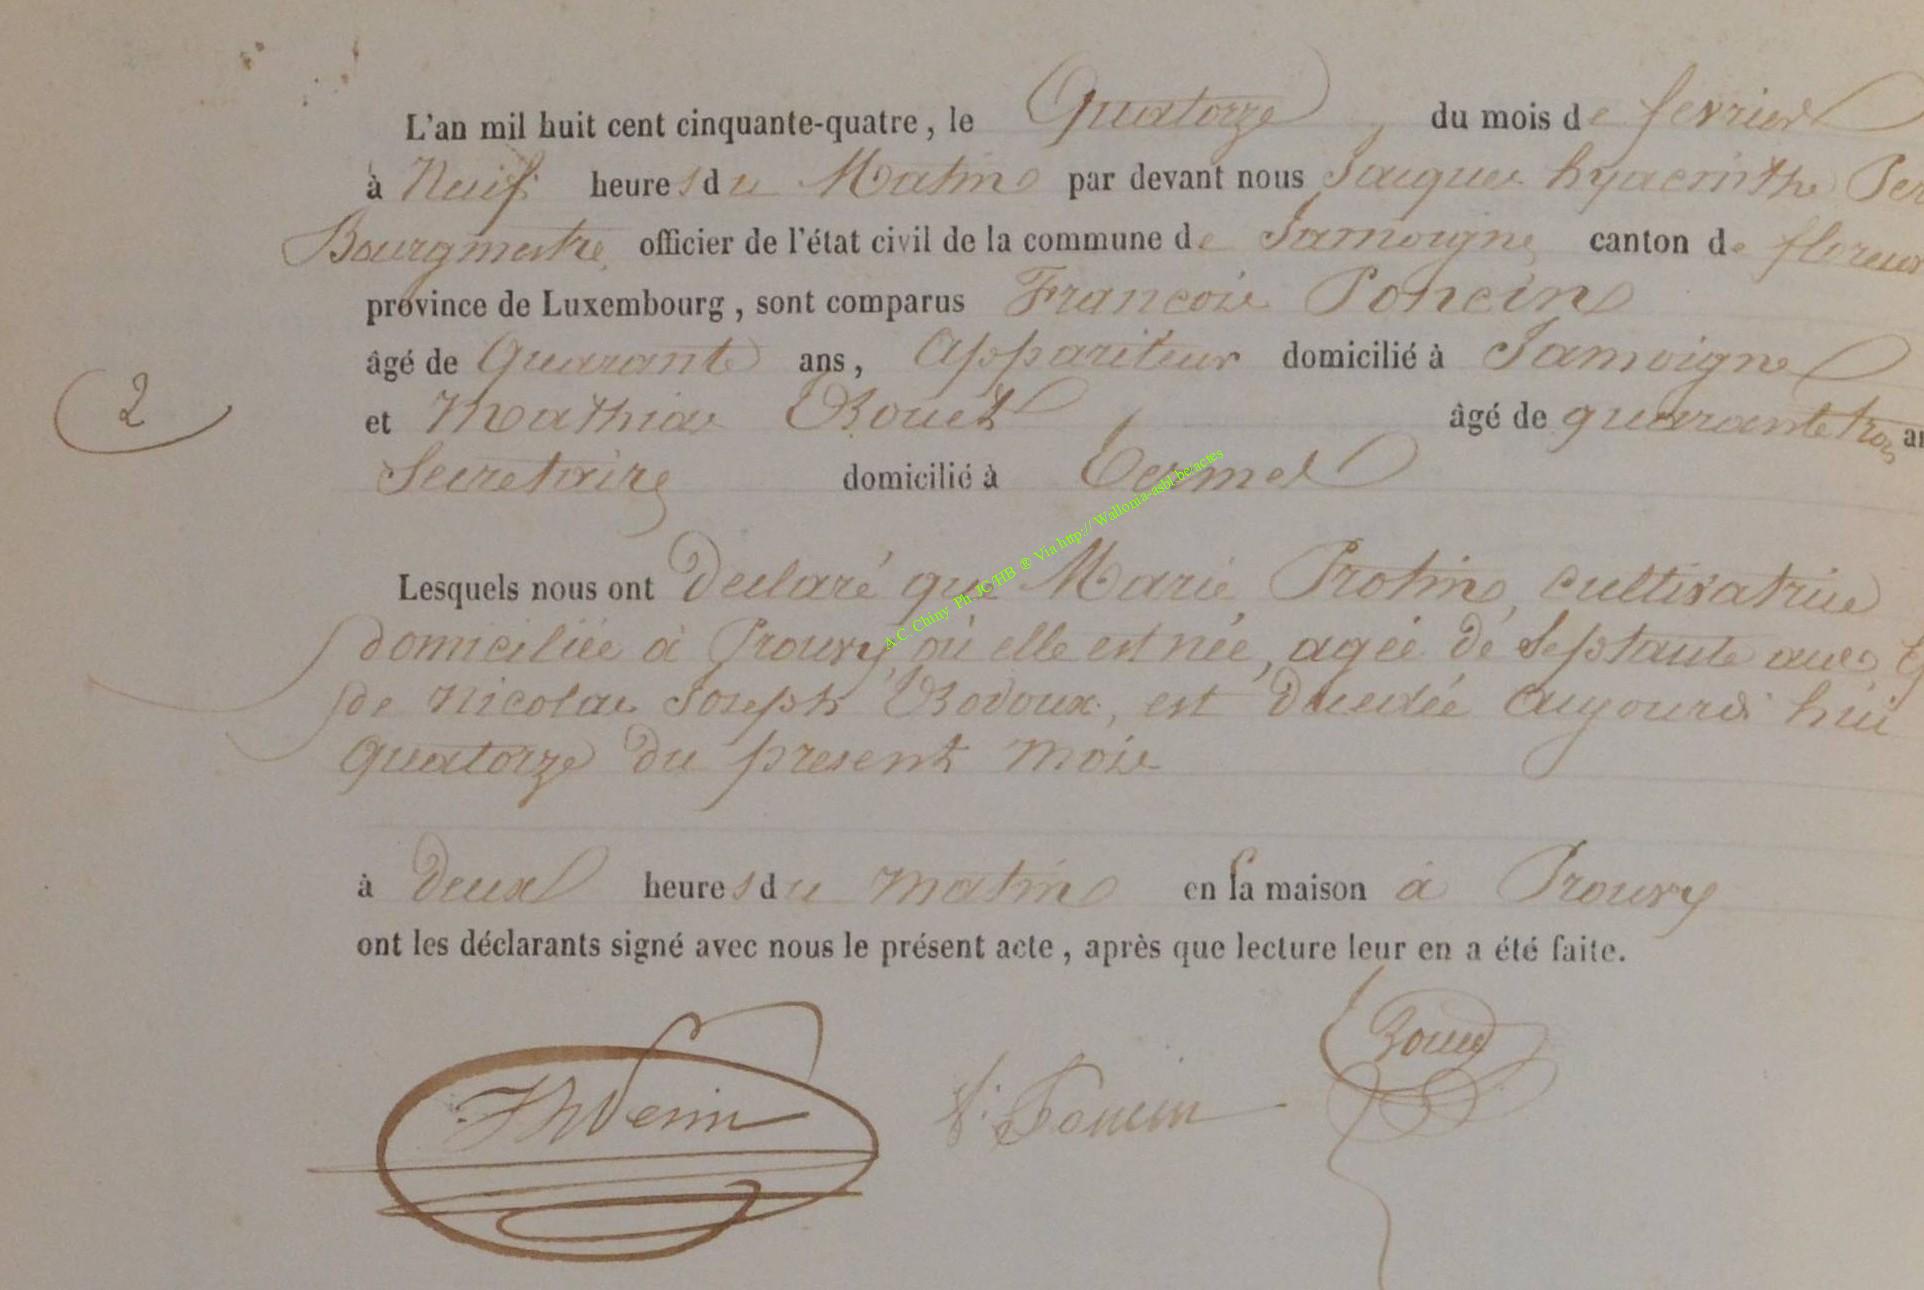 L'an mil huit cent cinquante-quatre, le Quatorze du mois de fevrier
à Neuf heures du Matin par devant nous Jacques hyacinthe
Bourgmestre officier de l'état civil de la commune de Jamoigne canton de
province de Luxembourg, sont comparus Francois Poncin
âgé de Quarante ans, Appariteur domicilié à Jamoigne
2
et Mathias Bouet âgé de quarante trois
Secretaire domicilié à Termes
Lesquels nous ont declaré que Marie Protin, cultivatrice
domiciliée à Prouvy, où elle est née, agée de Septante ans,
de Nicolas Joseph Bodoux, est decedée aujourd'hui
quatorze du present mois
à deux heures du matin en sa maison à Prouvy
ont les déclarants signé avec nous le présent acte, après que lecture leur en a été faite.
F. Poncin
A.C. Chiny Ph. JC/HB ® Via http://Wallonia-asbl.be/actes